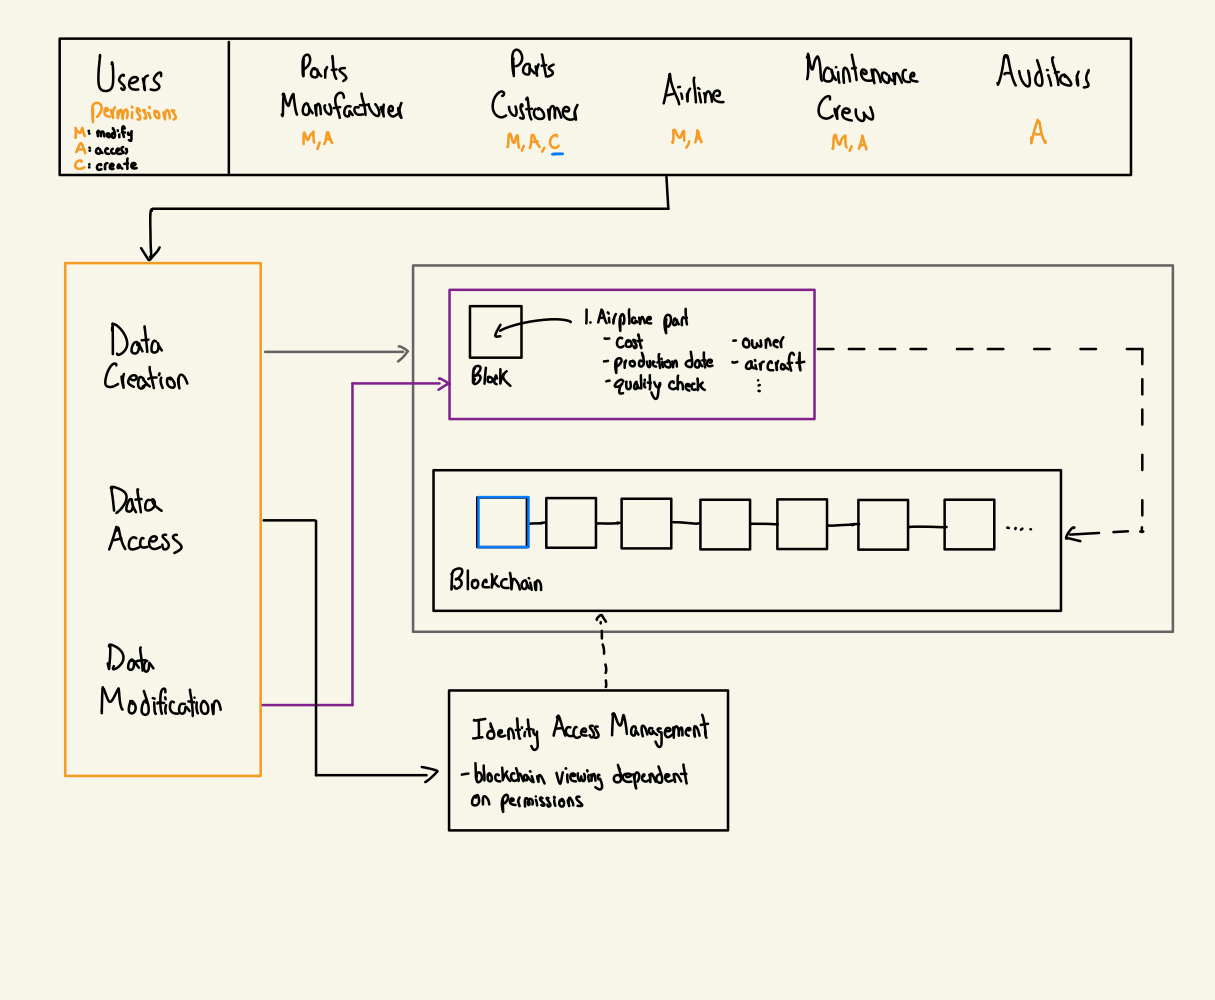 Users
Permissions
M: modify
A: access
C: create
Parts
Manufacturer
M, A
Parts
Customer
M, A, C
Airline
M, A
Maintenance
Crew
M, A
Auditors
A
Data
Creation
Data
Access
Data
Modification
Block
1. Airplane part
- cost
- production date
- quality check
- owner
- aircraft
⋮
....
Blockchain
Identity Access Management
- blockchain viewing dependent
on permissions